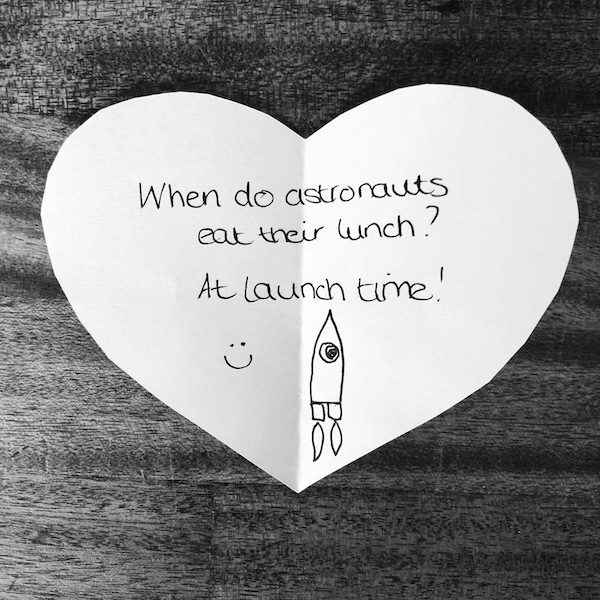 When do astronauts
eat their lunch?
At launch time!